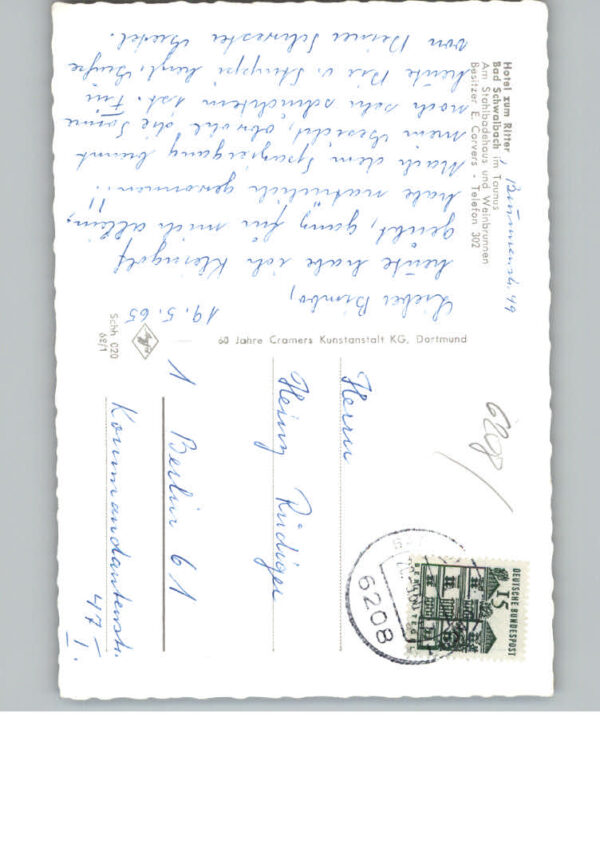 Hotel zum Ritter
Bad Schwalbach im Taunus
Am Stahlbadehaus und Weinbrunnen
Besitzer E. Corvers - Telefon 302
Brunnenstr. 49
19.5.65
Lieber Bimbo,
heute habe ich Kleingolf
geübt, ganz für mich allein,
habe natürlich gewonnen!!
Nach dem Spaziergang brannt
mein Gesicht, obwohl die Sonne
noch sehr schüchtern ist. Für
heute Dir u. Struppi herzl. Grüße
von Deiner Schwester
60 Jahre Cramers Kunstanstalt KG, Dortmund
Schh 020
68/1
Herrn
Heinz Rüdiger
1 Berlin 61
Kommandantenstr.
47 I.
6208
6208
15
DEUTSCHE BUNDESPOST
BERLIN TEGEL